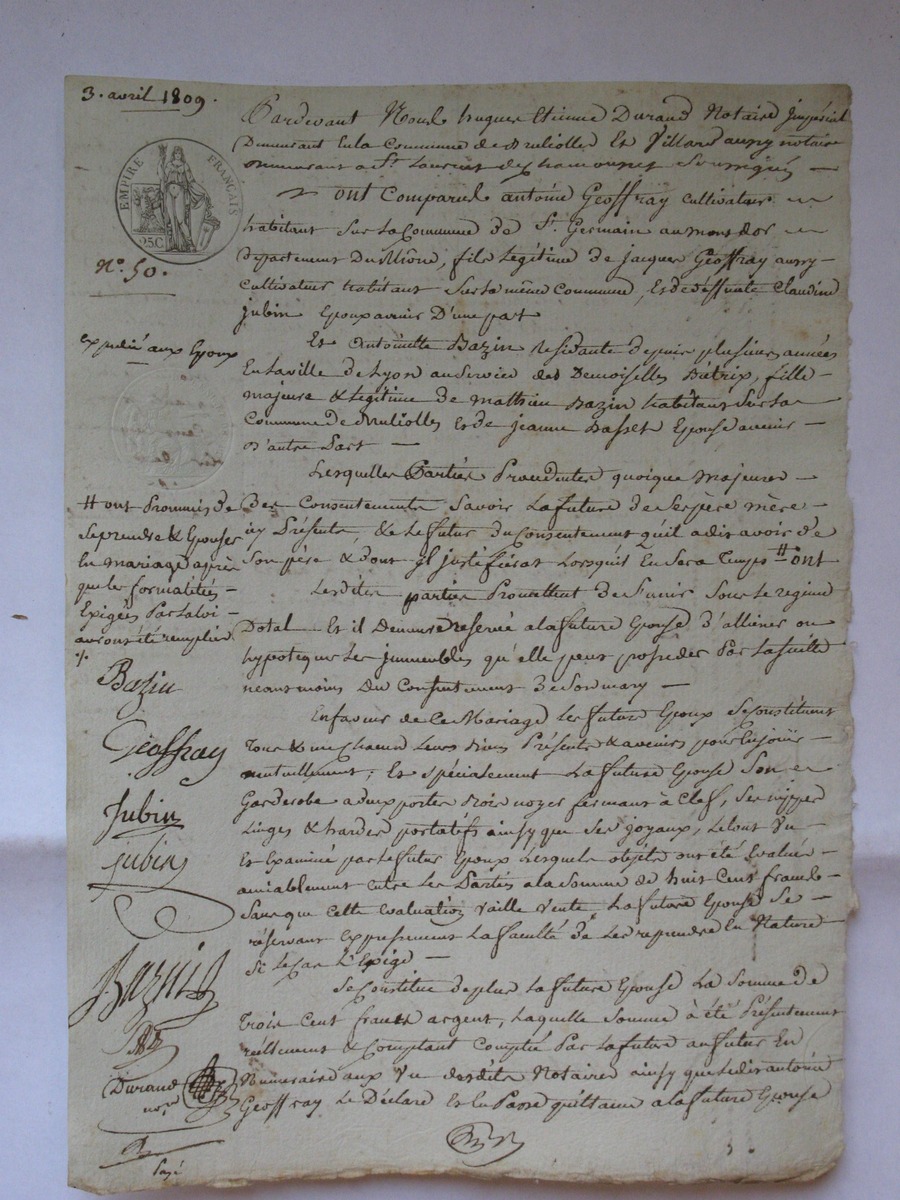 3. avril 1809.
Pardevant Nous hugues Etienne Durand Notaire Jmpérial
Demeurant En la Commune de Et Villard aussy notaire
Demeurant a St. Laurent de Chamousset Soussignés
EMPIRE FRANÇAIS
25C
N.o 50.
ont Comparus antoine Geoffray cultivateur
habitant Sur la Commune de St. Germain au mont dor
Departement Du Rhône, fils Légitime de jacques Geoffray aussy
cultivateur habitant Sur la même Commune, Et de deffunte Claudine
jubin Epoux avenir D'une part
expedié aux Epoux
Et Antoinette Bazin Residante depuis plusieurs années
En la ville de Lyon au Service des Demoiselles Bétrix, fille
majeure & Légitime de mathieu Bazin habitant Sur la
Commune de Et de jeanne Basset Epouse avenir
D'autre Part
Lesquelles Parties Procedentes quoique Majeures
des Consentements Savoir La future de Ses père mère
icy Présents, & Le futur Du Consentement qu'il a dit avoir de
Son père & dont Jl justifiera Lorsquil En Sera Temps # ont
# ont Prommis de
Se prendre & Epouser
En mariage après
que les formalités
Exigées Par la loi
auront été remplies
./.
Lesdites parties Promettent de S'unir Sous le regime
Dotal Et il Demeure réservé a la future Epouse d'alliener ou
hypotequer Les jmmeubles qu'elle peut posséder Par La Suitte
neantmoins Du Consentement De Son mary
En faveur de Ce Mariage Les future Epoux Se Constituent
Tous & un chacun Leurs Biens Présents & avenirs pour En jouir
mutuellement; Et spécialement La future Epouse Son
Garderobe a deux portes Bois noyer fermant à Clef, Ses nippes
Linges & hardes portatifs ainsy que Ses joyaux, Le tout Vu
Et Examiné par Le futur Epoux Lesquels objets ont été Evalués
amiablement entre Les Parties a la Somme de huit Cent francs
Sans que Cette Evaluation Vaille Vente, La future Epouse Se
réservant Expressement La faculté de Les reprendre En Nature
Si le Cas L'Exige
Se Constitue de plus La future Epouse La Somme de
Trois Cent francs argent, Laquelle Somme à été Présentement
réellement & Comptant Comptée Par La future au futur En
Numeraire aux Vu desdits Notaires ainsy que Ledit antoine
Geoffray Le Déclare Et En Passe quittance a la future Epouse
Bazin
Geoffray
Jubin
jubin
Bazin
Durand
nore